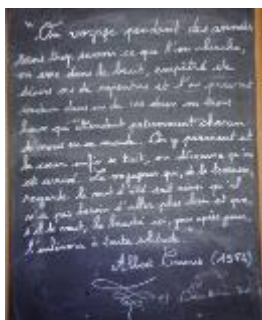 " On voyage pendant des années
sans trop savoir ce que l'on cherche,
on erre dans le bruit, empêtré de
désirs ou de repentirs et l'on parvient
soudain dans l'un de ces deux ou trois
lieux qui attendent patiemment chacun
de nous en ce monde. On y parvient et
le cœur enfin se tait, on découvre qu'on
est arrivé. Le voyageur qui, de la terrasse,
regarde la nuit d'été sait ainsi qu'il
n'a pas besoin d'aller plus loin et que,
s'il le veut, la beauté ici, jour après jour,
l'enlèvera à toute solitude.
Albert Camus (1952)